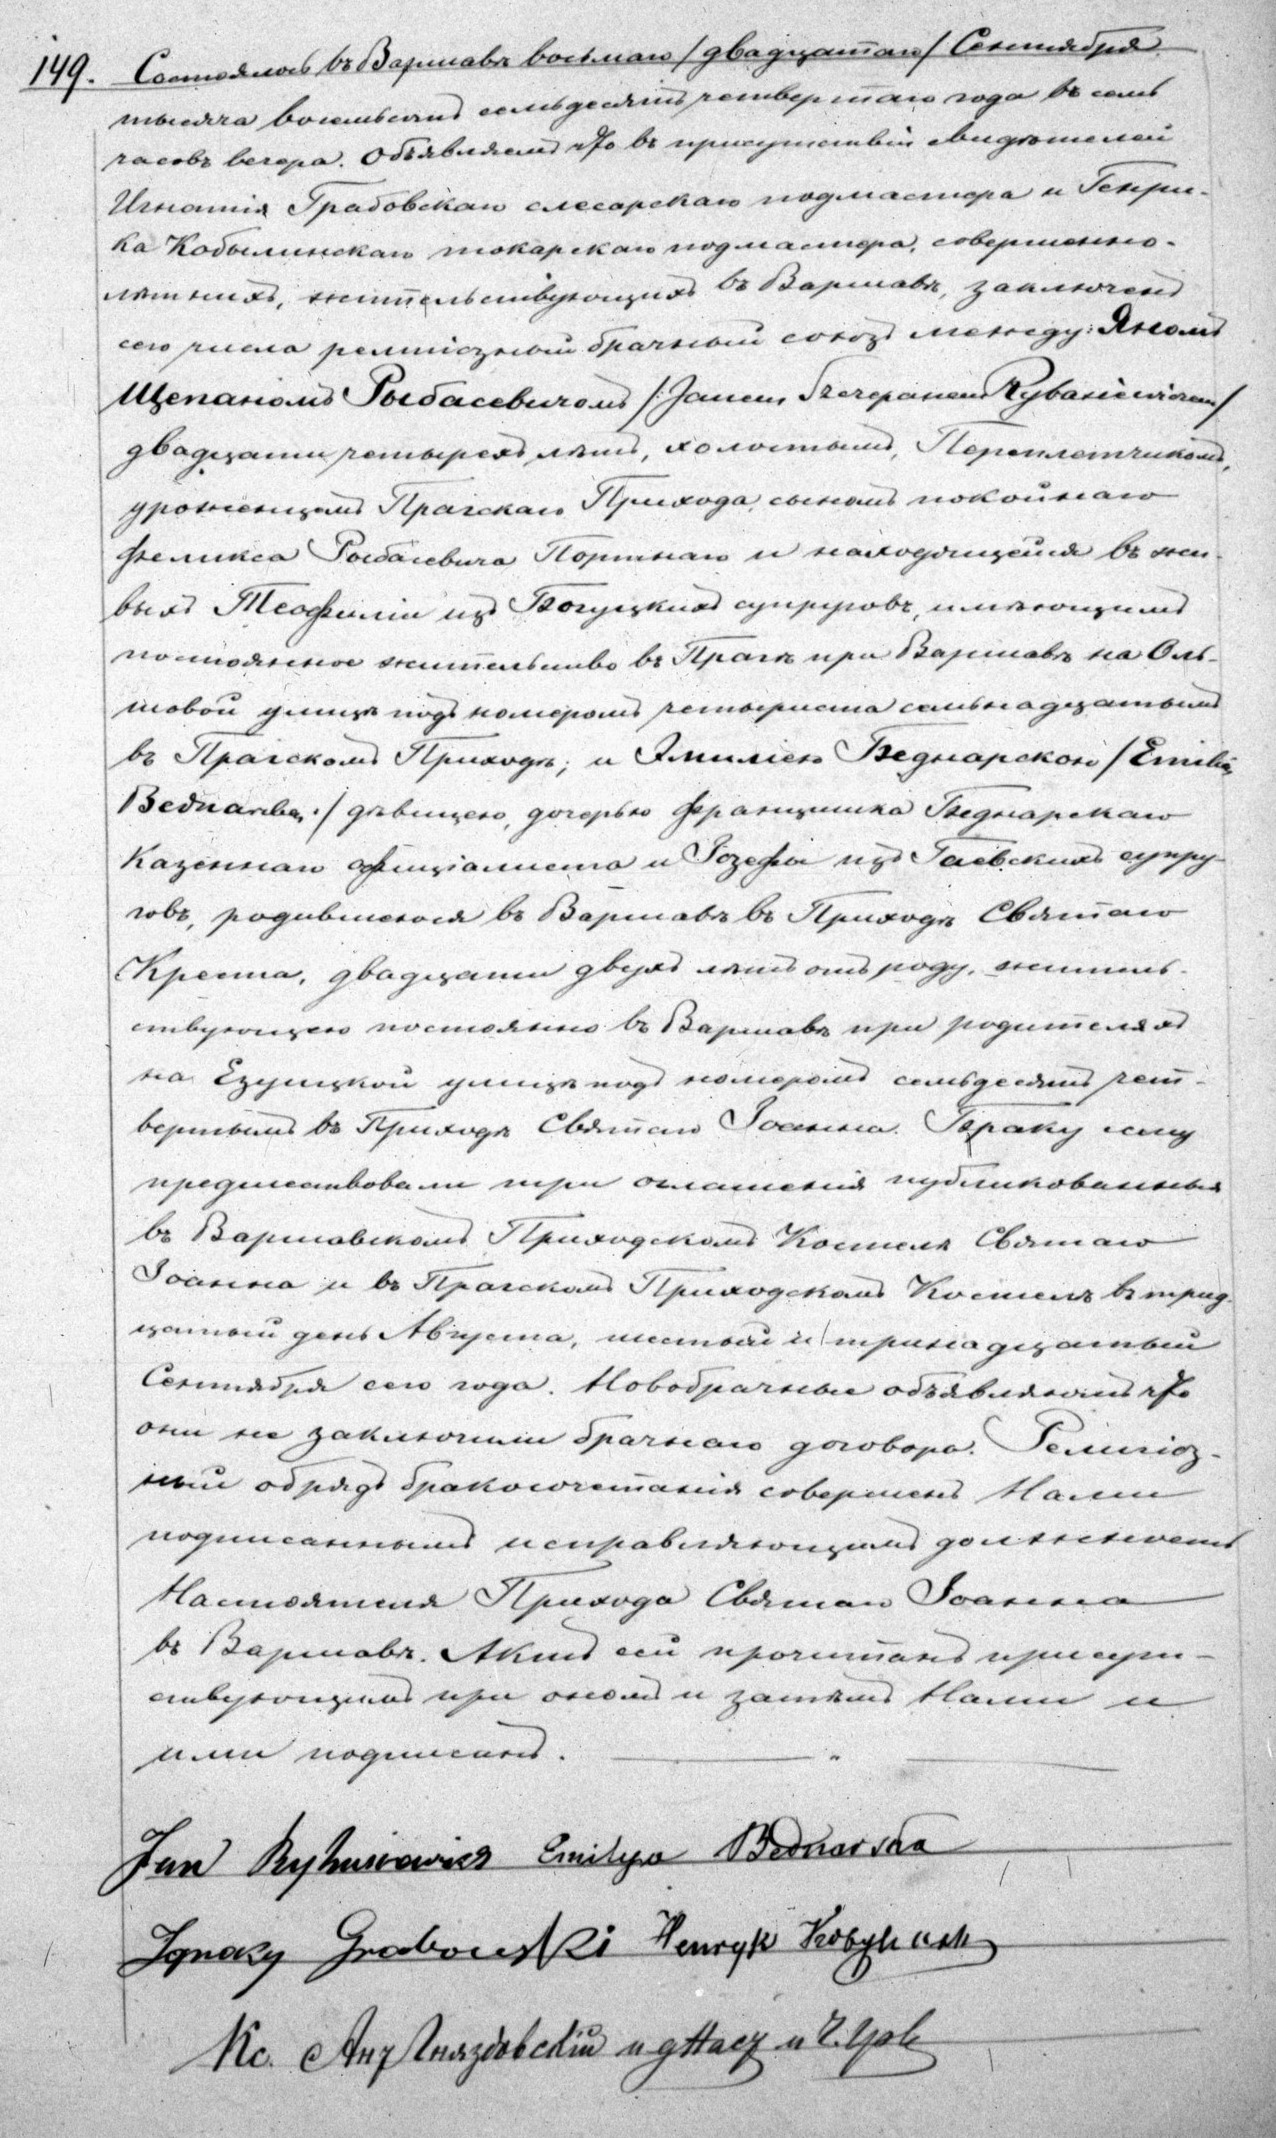 149. Состоялось въ Варшавѣ восьмаго /двадцатаго/ Сентября
тысяча восемьсотъ семьдесятъ четвертаго года въ семь
часовъ вечера. Объявляемъ что въ присутствіи свидѣтелей
Игнатія Грабовскаго слесарскаго подмастера и Генри-
ка Кобылинскаго токарскаго подмастера, совершенно-
лѣтнихъ, жительствующихъ въ Варшавѣ, заключенъ
сего числа религіозный брачный союзъ между: Яномъ
Щепаномъ Рыбасевичомъ /:Janem Szczepanem Rybasiewiczem/
двадцати четырехъ лѣтъ, холостымъ, Переплетчикомъ,
уроженцемъ Прагскаго Прихода, сыномъ покойнаго
Феликса Рыбасевича Портнаго и находящейся въ жи-
выхъ Теофиліи изъ Богуцкихъ супруговъ, имѣющимъ
постоянное жительство въ Прагѣ при Варшавѣ на Оль-
шовой улицѣ подъ номеромъ четыриста семьнадцатымъ
въ Прагскомъ Приходѣ; и Эмиліею Беднарскою /Emilią
Bednarską:/ дѣвицею, дочерью Францишка Беднарскаго
Казеннаго офиціалиста и Іозефы изъ Гаевскихъ супру-
говъ, родившеюся въ Варшавѣ въ Приходѣ Святаго
Креста, двадцати двухъ лѣтъ отъ роду, житель-
ствующею постоянно въ Варшавѣ при родителяхъ
на Езуицкой улицѣ подъ номеромъ семьдесятъ чет-
вертымъ въ Приходѣ Святаго Іоанна. Браку сему
предшествовали три оглашенія публикованныя
въ Варшавскомъ Приходскомъ Костелѣ Святаго
Іоанна и въ Прагскомъ Приходскомъ Костелѣ въ трид-
цатый день Августа, шестый и тринадцатый
Сентября сего года. Новобрачные объявляютъ что
они не заключили брачнаго договора. Религіоз-
ный обрядъ бракосочетанія совершенъ Нами
подписаннымъ исправляющимъ должность
Настоятеля Прихода Святаго Іоанна
въ Варшавѣ. Актъ сей прочитанъ присут-
ствующимъ при ономъ и затѣмъ Нами и
ими подписанъ.
Jan Rybasiewicz Emilya Bednarska
Ignacy Grabowski Henryk Kobyliński
Кс. Ант